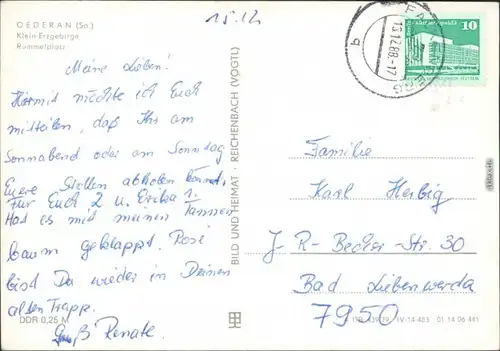 OEDERAN (Sa.)
Klein-Erzgebirge
Rummelplatz
15.12
Meine Lieben!
Hiermit möchte ich Euch
mitteilen, daß Ihr am
Sonnabend oder am Sonntag
Eure Stollen abholen könnt,
Für Euch 2 u. Erika 1.
Hat es mit meinem Tannen
baum geklappt. Rosi
bist Du wieder in Deinem
alten Trapp.
Gruß Renate.
DDR 0,25 M
BILD UND HEIMAT · REICHENBACH (VOGTL)
13.12.88.-17
b
10
Familie
Karl Herbig
J-R-Becher-Str. 30
Bad Liebenwerda
7950
IV-14-483 01 14 06 441